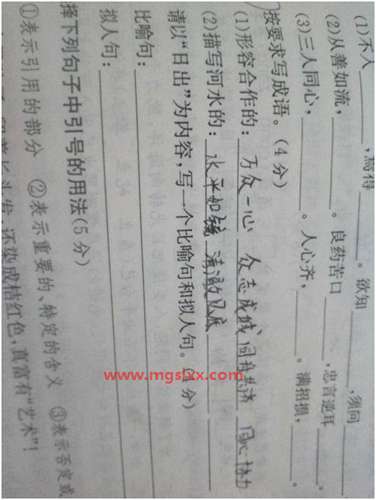 (1)不入________,焉得________。欲知________,须问________
(2)从善如流,________。良药苦口________,忠言逆耳________。
(3)三人同心,________。人心齐,________。满招损,________。
按要求写成语。(4分)
(1)形容合作的: 万众一心 众志成城 同舟共济 同心协力
(2)描写河水的: 水平如镜 清澈见底
请以“日出”为内容,写一个比喻句和拟人句。(4分)
比喻句:
拟人句:
择下列句子中引号的用法(5分)
①表示引用的部分 ②表示重要的、特定的含义 ③表示否定或
头发,还染成桔红色,真富有“艺术”!
www.mgslxx.com